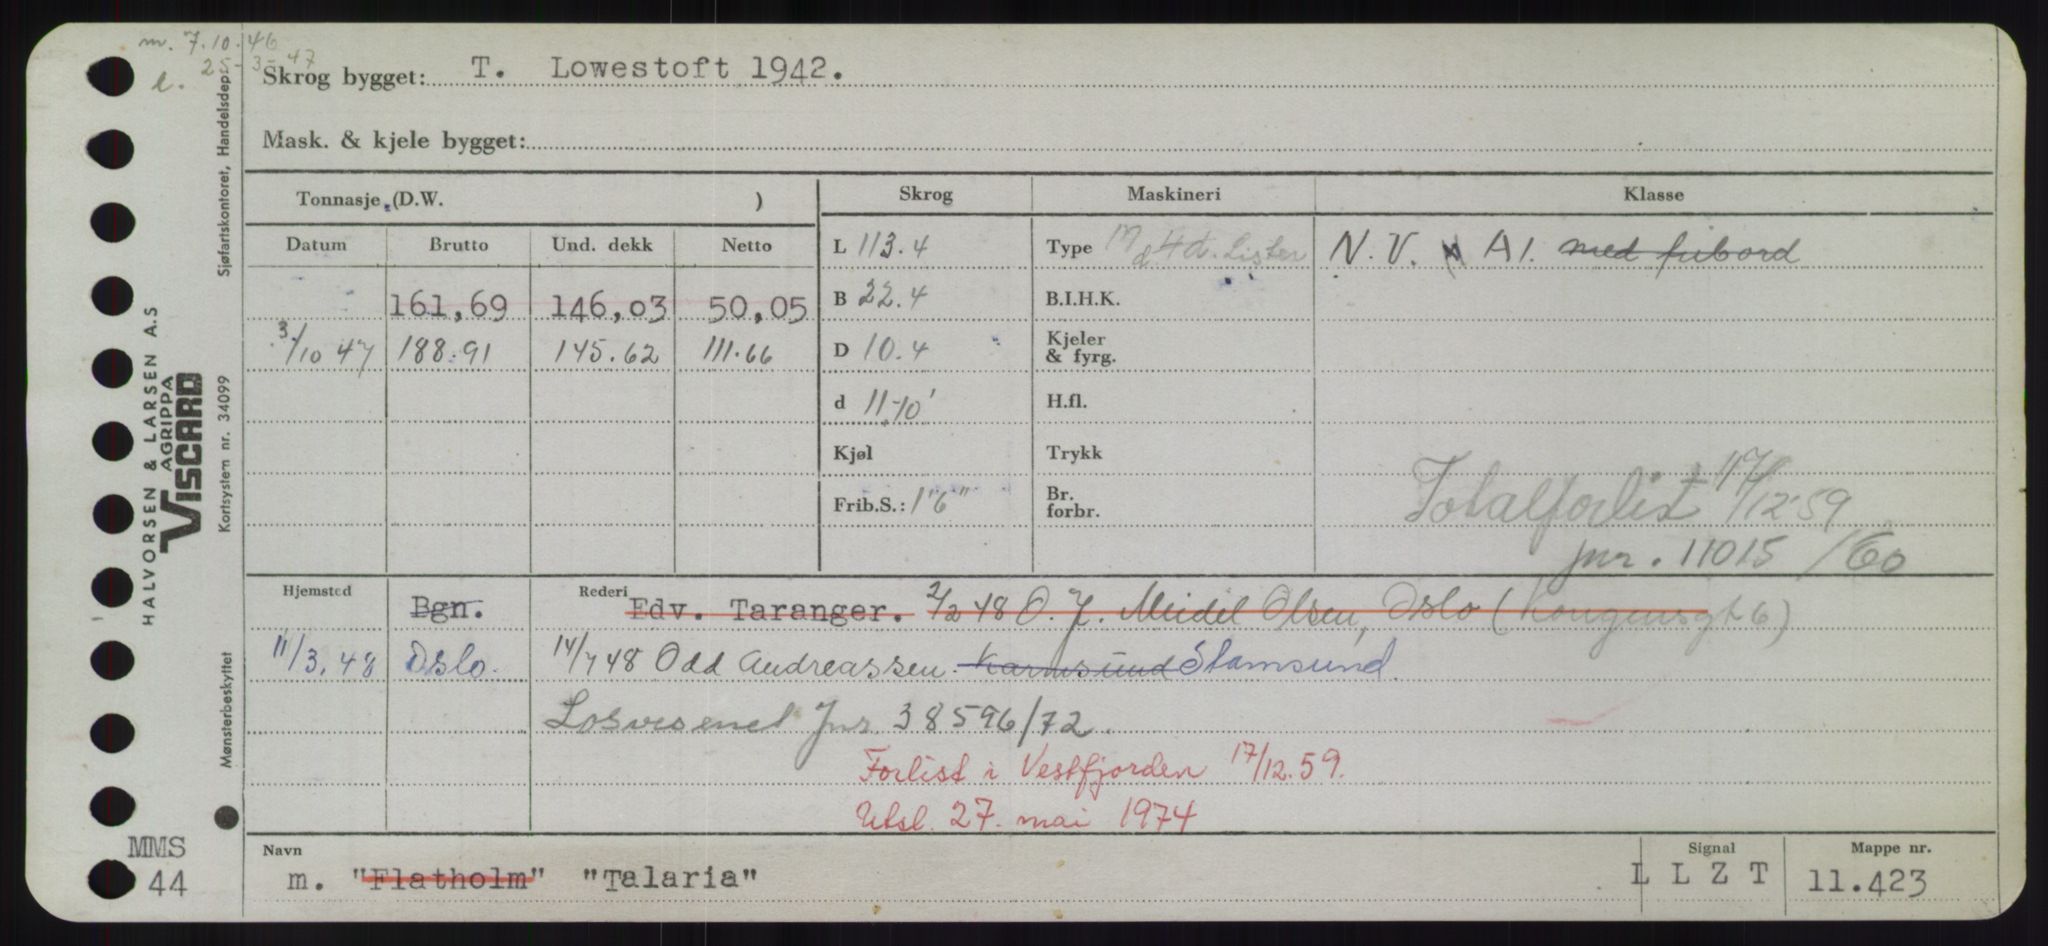 m. 7.10.46
l. 25-3-47
Skrog bygget: T. Lowestoft 1942.
Mask. & kjele bygget:
Tonnasje (D.W. )
Skrog
Maskineri
Klasse
Datum
Brutto
Und. dekk
Netto
L 113.4
Type M 4d. Lister
N.V. A1. med fribord
161,69
146,03
50,05
B 22.4
B.I.H.K.
3/10 47
188.91
145.62
111.66
D 10.4
Kjeler
& fyrg.
d 11-10'
H.fl.
Kjøl
Trykk
Totalforlist 17/12-59
Frib.S.: 1'6"
Br.
forbr.
jnr. 11015/60
Hjemsted
Bgn.
Rederi
Edv. Taranger. 2/2 48 O. J. Meidel Olsen, Oslo (Kongensgt 6)
11/3.48
Oslo.
14/7 48 Odd Andreassen. Karmsund Stamsund.
Losvesenet Jnr. 38596/72.
Forlist i Vestfjorden 17/12.59.
Utsl. 27. mai 1974
Navn
m. "Flatholm" "Talaria"
Signal
L L Z T
Mappe nr.
11.423
MMS
44
HALVORSEN & LARSEN A.S
AGRIPPA
VISCARD
Sjøfartskontoret, Handelsdep.
Kortsystem nr. 34099
Mønsterbeskyttet